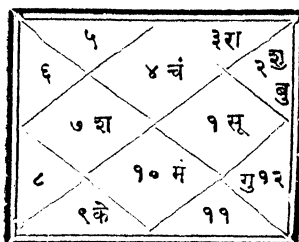 ५ ३रा
६ ४ चं २ शु
बु
७ श १ सू
८ १० मं गु १२
९ के ११